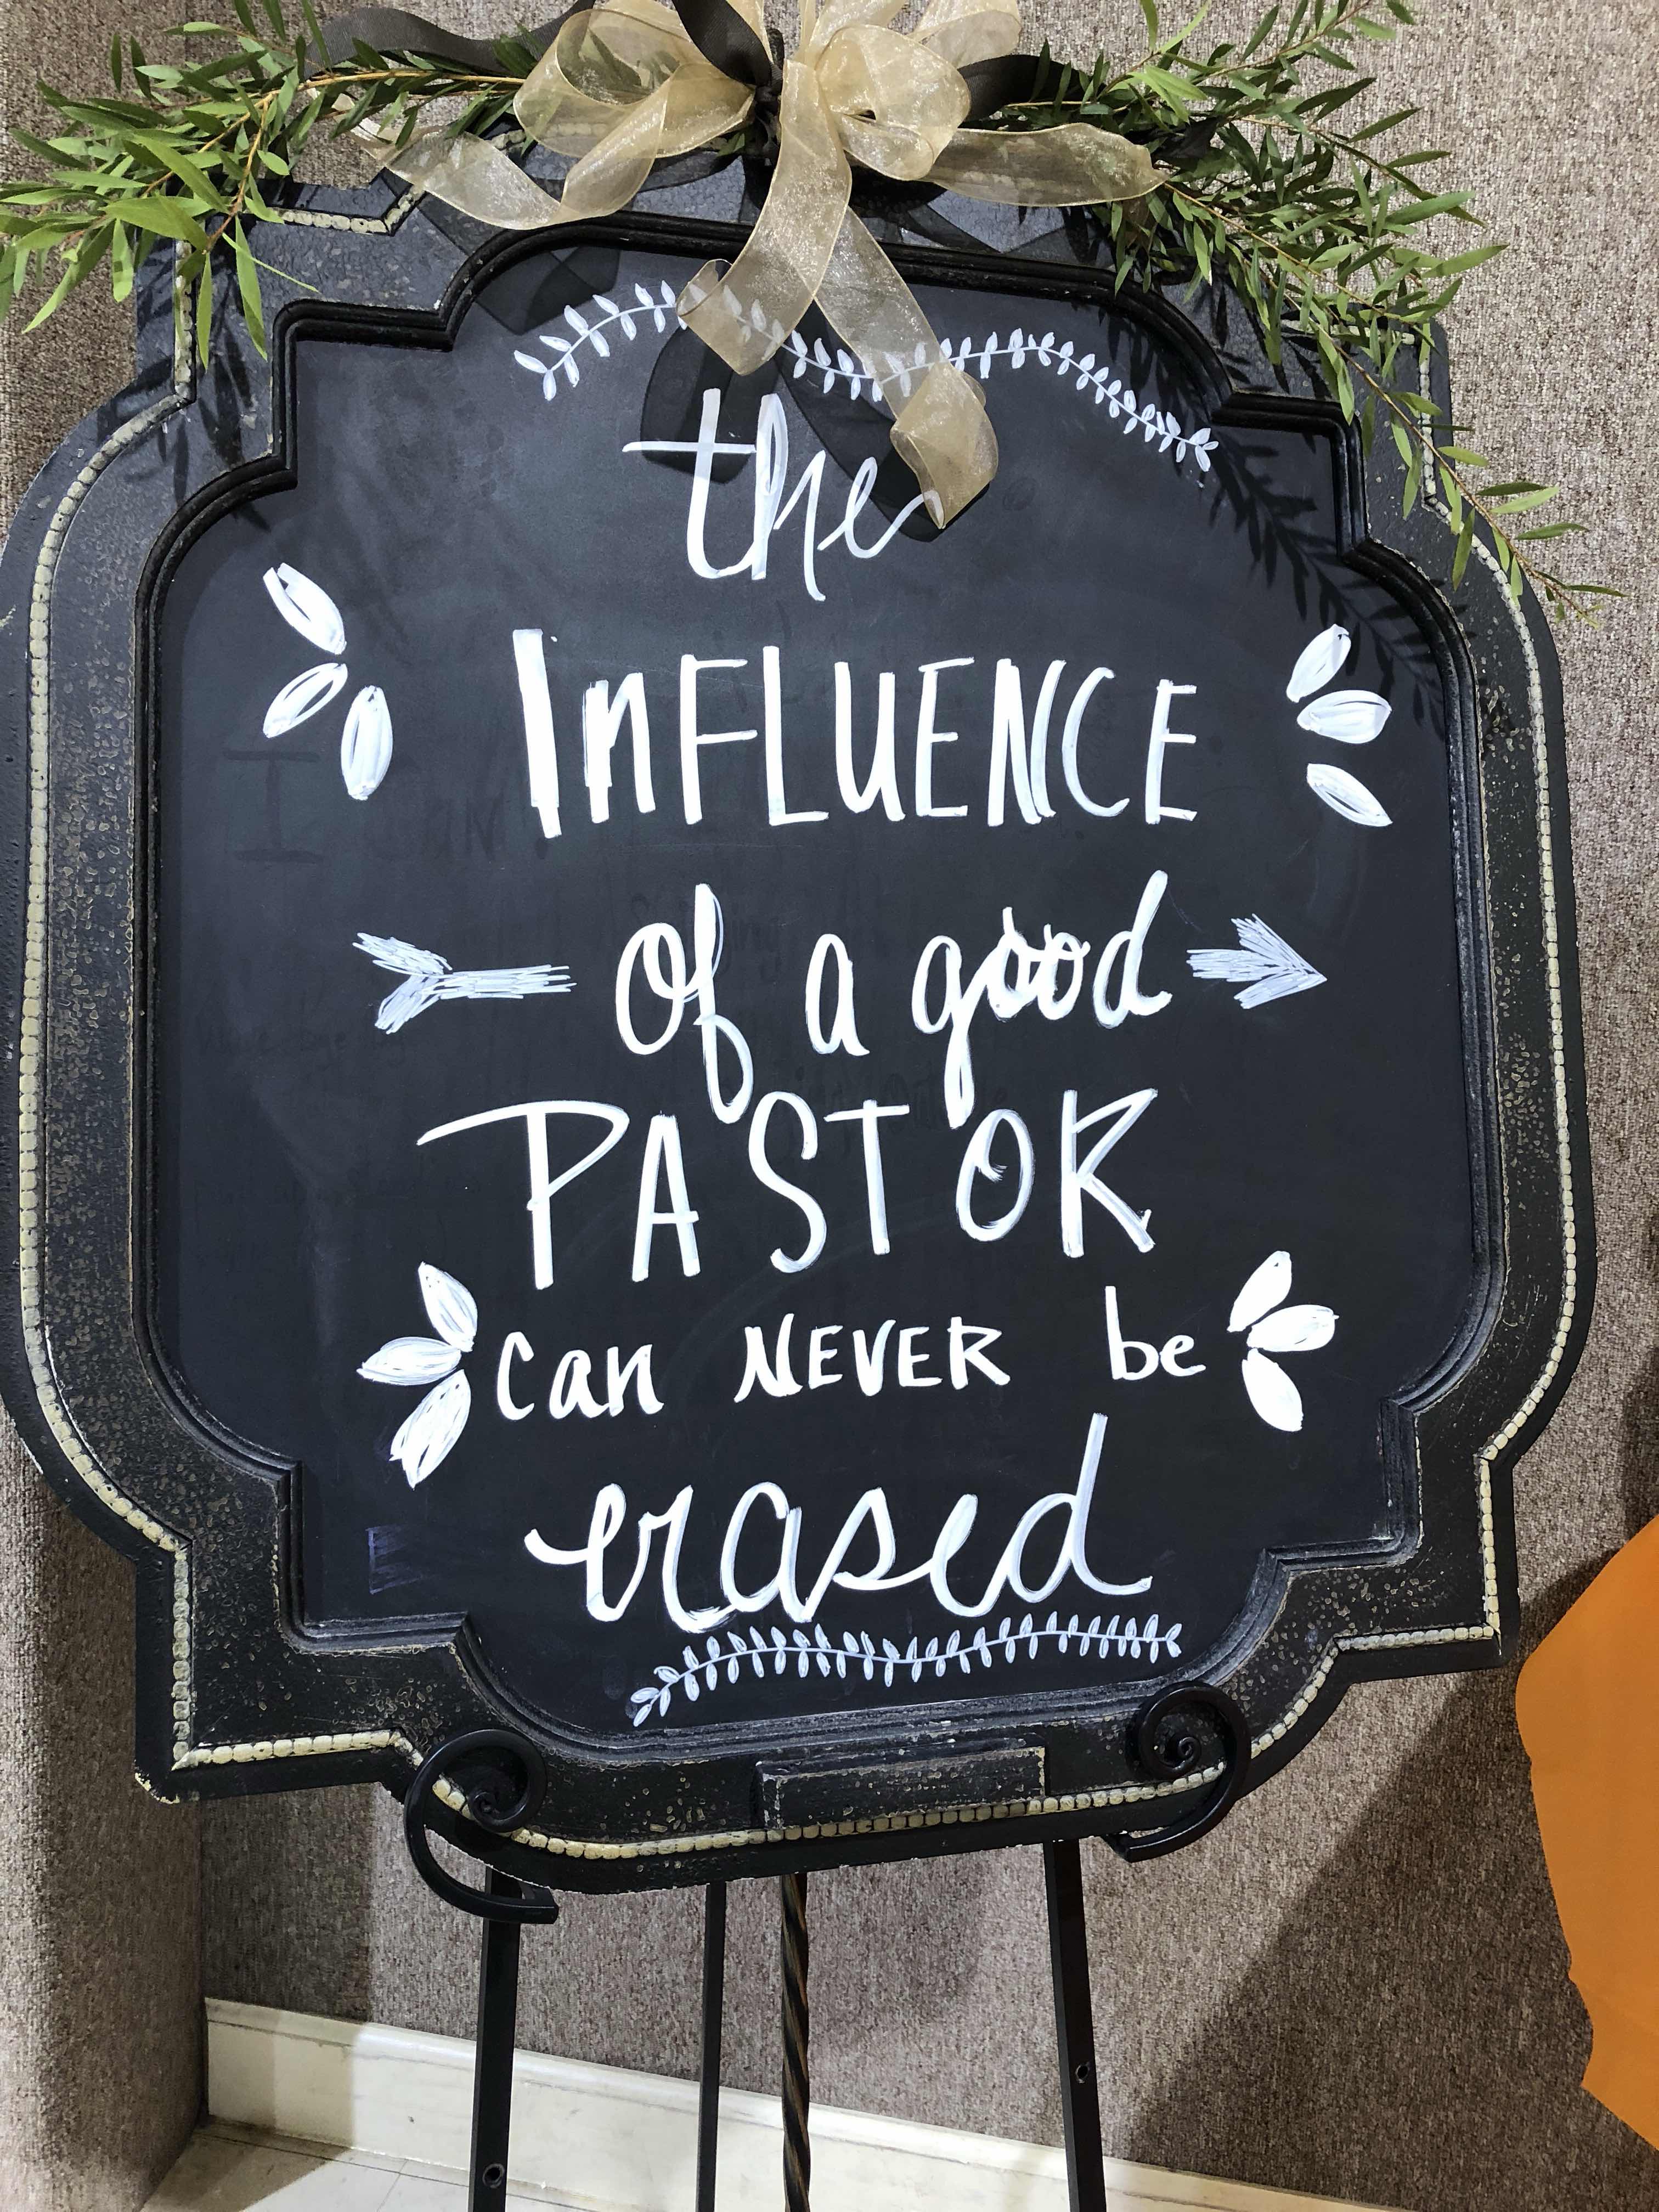 the
InFLUENCE
of a good
PASTOR
can NEVER be
erased